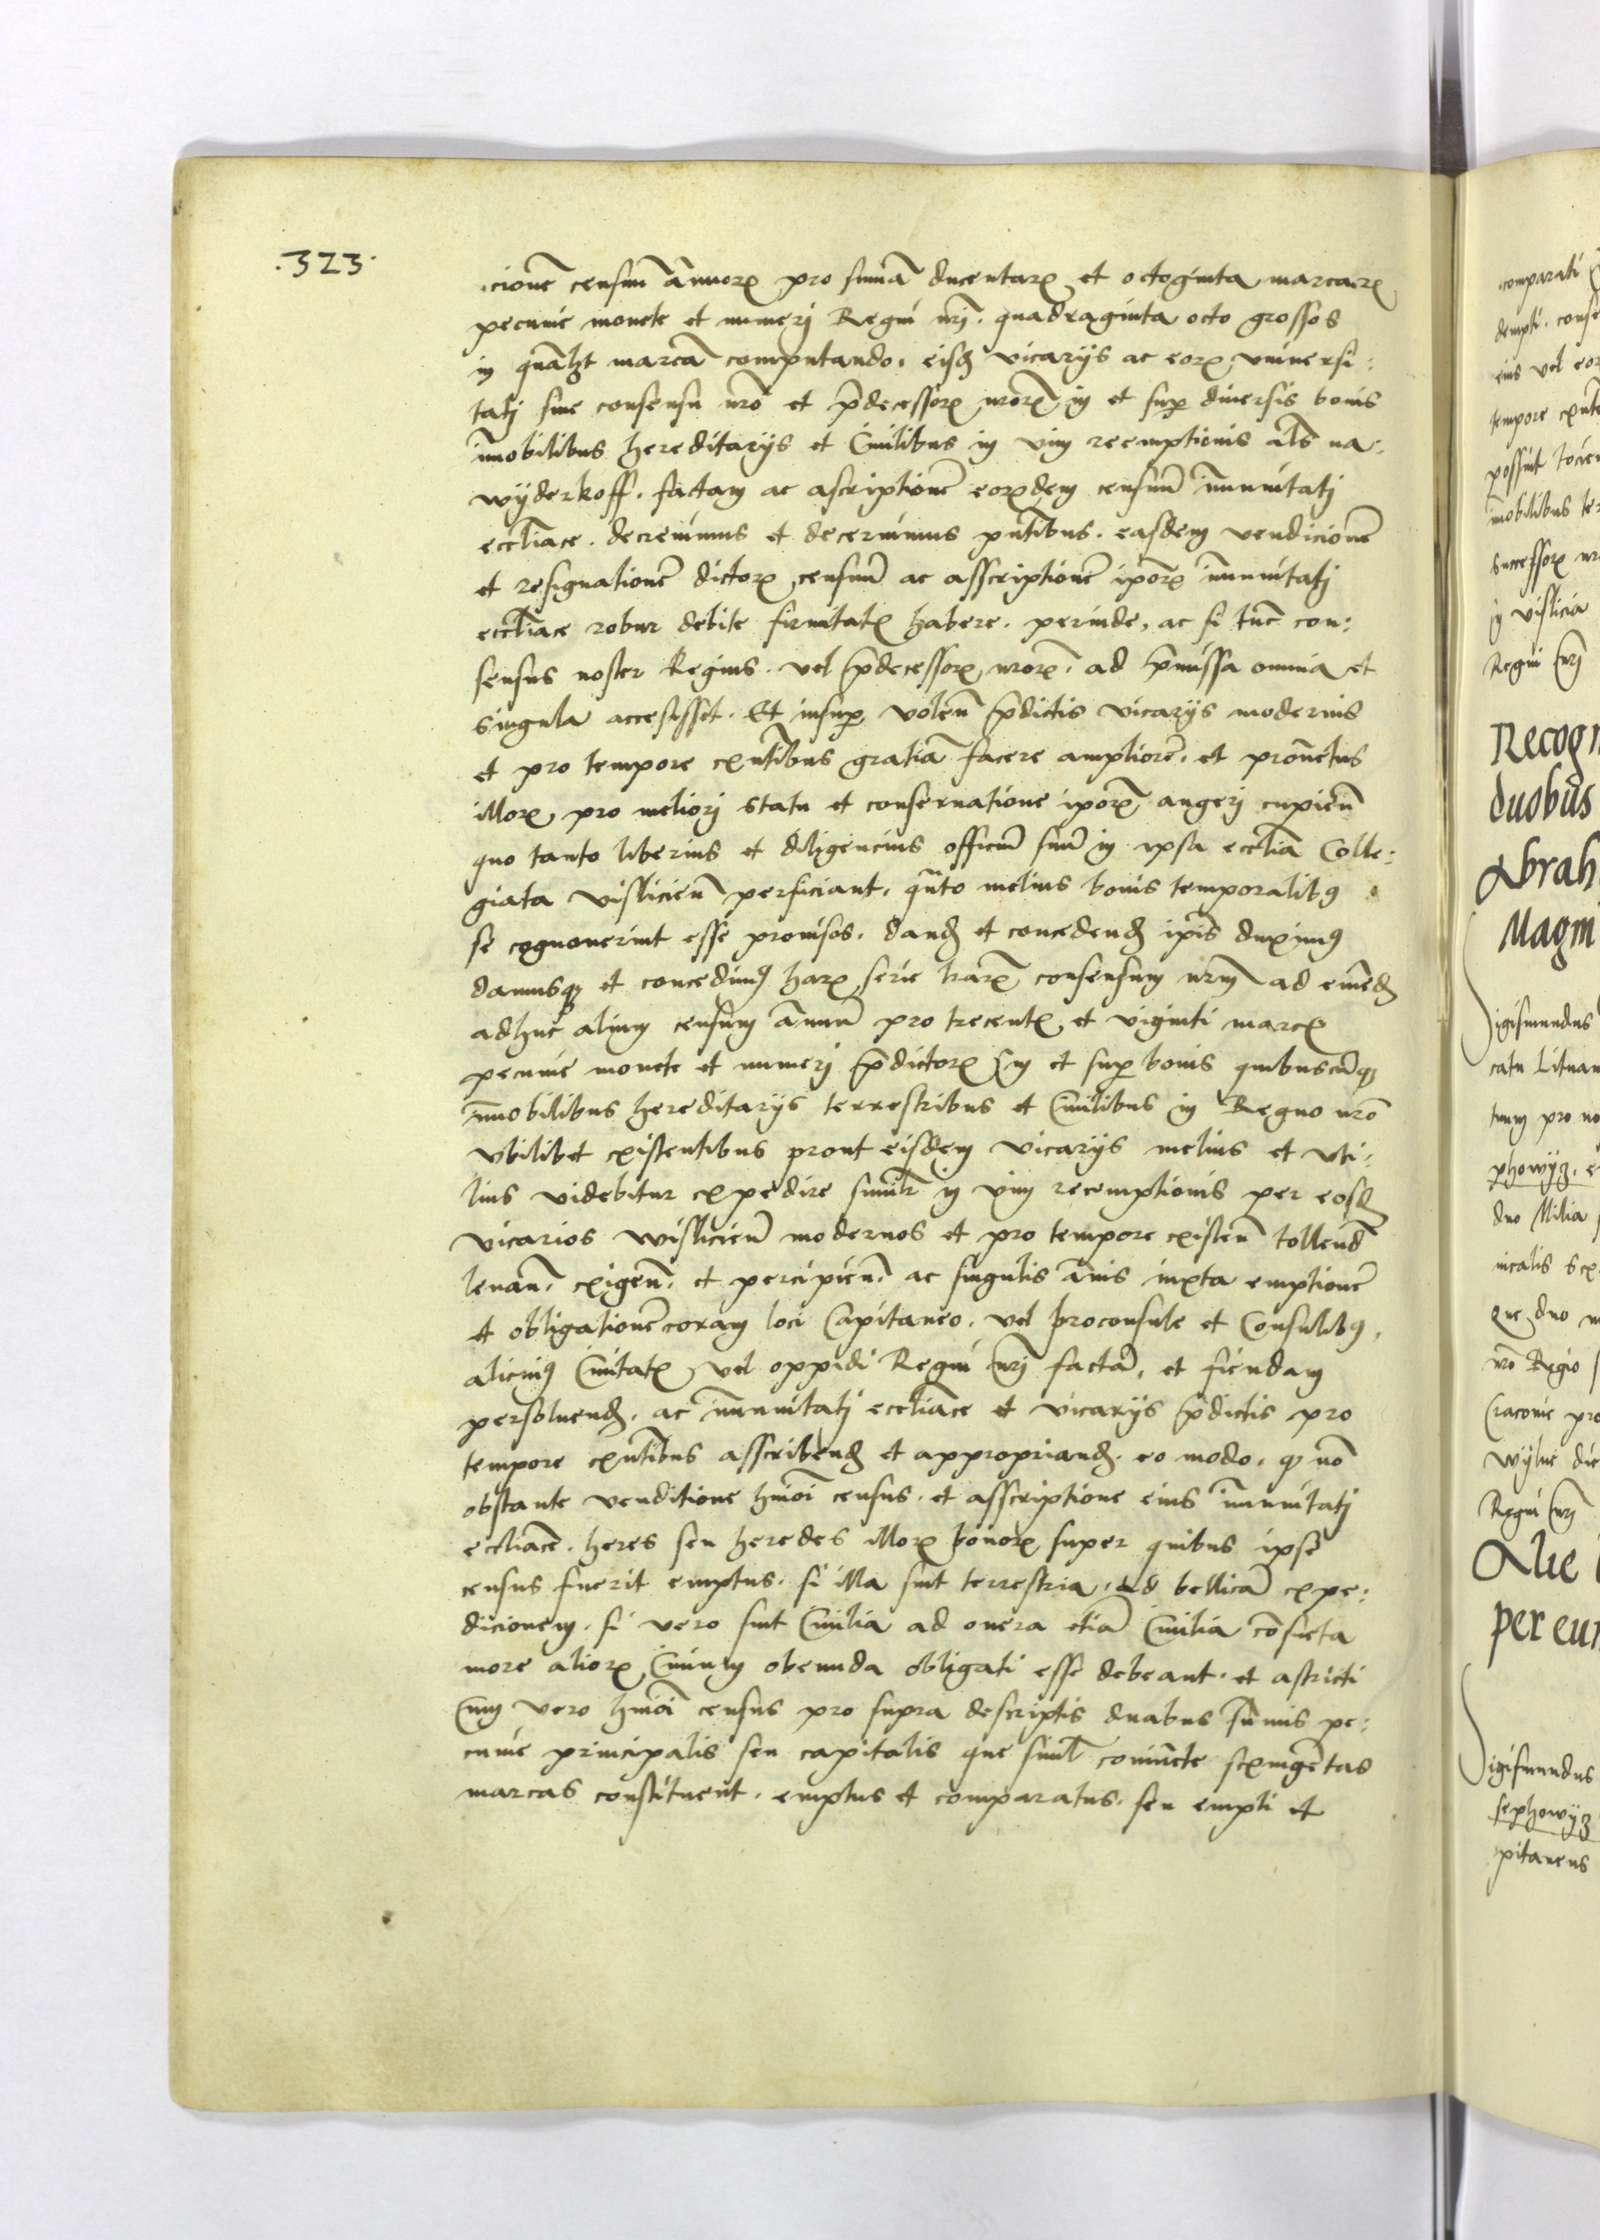 .323.
icionē censuū ānuorꝝ pro summa ducentarꝝ et octoginta marcarꝝ
pecunie monete et numerj Regni nrj. quadraginta octo grossos
in quālꝫt marcā computando. eisdꝫ vicarijs ac eorꝝ vniuersi:
tatj sine consensu nrō et p̄decessorꝝ nrorꝝ in et sup diuersis bonis
īmobilibus hereditarijs et Ciuilibus in vim reemptionis als na:
wyderkoff. factam ac ascriptionē eorꝝdem censuū īmunitatj
eccliace. decreuimus et decernimus pntibus. easdem vendicionē
et resignationē dictorꝝ censuū ac asscriptionē iporꝝ īmunitatj
eccliace robur debite firmitatꝭ habere. perinde, ac si tūc con:
sensus noster Regius. vel p̄decessorꝝ nrorꝝ. ad p̄missa omnia et
singula accessisset. Et insup volen̄ p̄dictis vicarijs modernis
et pro tempore exntibus gratiā facere ampliorē. et prouētus
illorꝝ pro meliorj statu et conseruatione iporꝝ augerj cupien̄
quo tanto liberius et diligencius officiū suū in ipsa ecclia Colle:
giata vislicien̄ perficiant. qnto melius bonis temporalibꝰ
se cognouerint esse prouisos. dandꝫ et concedendꝫ ipis duximꝰ
damusqꝫ et concedimꝰ harꝝ serie lrarꝝ consensum nrm ad emēdꝫ
adhuc alium censum ānuū pro trecentꝭ et viginti marcꝭ
pecunie monete et numerj p̄dictorꝝ in et sup bonis quibuscūqꝫ
īmobilibus hereditarijs terrestribus et Ciuilibus in Regno nrō
vbilibet existentibus prout eisdem vicarijs melius et vti:
lius videbitur expedire similr in vim reemptionis per eosdꝫ
vicarios wislicien̄ modernos et pro tempore existen̄ tollend̄
leuan̄. exigen̄. et percipien̄. ac singulis ānis iuxta emptionē
et obligationē coram loci Capitaneo. vel proconsule et Consulibꝰ.
alicuiꝰ Ciuitatꝭ vel oppidi Regni nrj factā. et fiendam
persoluendꝫ. ac īmunitatj eccliace et vicarijs p̄dictis pro
tempore exntibus asscribendꝫ et appropriandꝫ. eo modo. qꝫ nō
obstante venditione hmōi census. et asscriptione eius īmunitatj
eccliace. heres seu heredes illorꝝ bonorꝝ super quibus ipse
census fuerit emptus. si illa sint terrestria. ad bellicā expe:
dicionem. si vero sint Ciuilia ad onera etiā Ciuilia cōsueta
more aliorꝝ Ciuium obeunda obligati esse debeant. et astricti
Cum vero hmōi census pro supra descriptis duabus sūmis pe:
cunie principalis seu capitalis que siml coniūcte sexingētas
marcas constituent. emptus et comparatus. seu empti et
comparati
dempti. conse
eius vel eor
tempore exnt
possint tocien
īmobilibus ter
Successorꝝ nr
in vislicia
Regni nrj
Recogn
duobus
Abrah
Magni
igismundus
catu Lituan
tuum pro no
phowyꝫ. e
duo Milia
nicalis Sex
Que duo m
nrō Regio
Cracouie pro
wylne die
Regni nrj
Alie
per eun
igismundus
sephowyꝫ
pitaneus